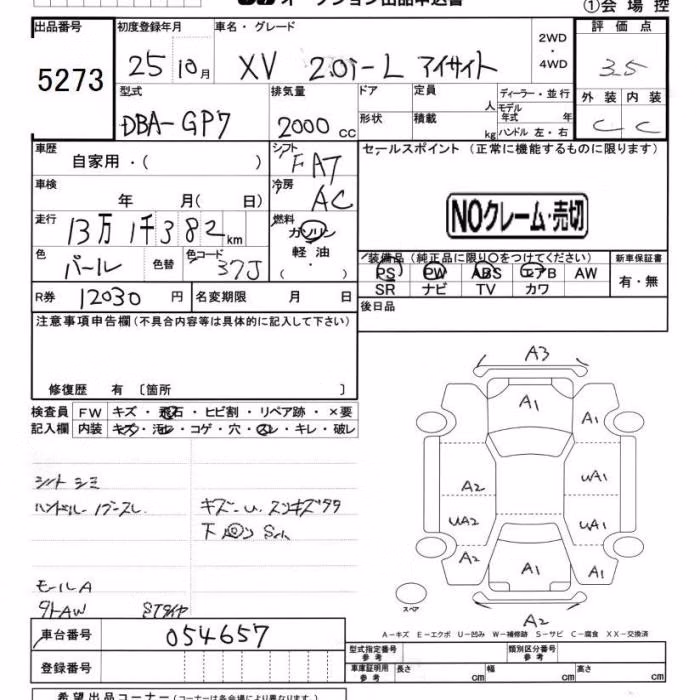 オークション出品申込書
①会場控
出品番号
5273
初度登録年月
25 10月
車名・グレード
XV 2.0i-L アイサイト
2WD
・
4WD
評価点
3.5
外装 内装
C C
型式
DBA-GP7
排気量
2000 cc
ドア
形状
定員
人
積載
kg
ディーラー・並行
モデル
年式 年
ハンドル 左・右
車歴
自家用・( )
シフト
FAT
車検
年 月( 日)
冷房
AC
走行
13万1千382km
燃料
ガソリン
軽油
・
( )
色
パール
色替
色コード
37J
R券
12030円
名変期限 月 日
セールスポイント(正常に機能するものに限ります)
NOクレーム・売切
装備品(純正品に限り○をつけてください)
PS PW ABS エアB AW
SR ナビ TV カワ
新車保証書
有・無
後日品
注意事項申告欄(不具合内容等は具体的に記入して下さい)
修復歴 有〔箇所 〕
検査員
記入欄
FW キズ・飛石・ヒビ割・リペア跡・×要
内装 キズ・汚レ・コゲ・穴・スレ・キレ・破レ
シート シミ
ハンドル
モールA
A3
A1
A1
A2
UA1
UA2
UA1
A2
A1
A1
A2
スペア
A-キズ E-エクボ U-凹み W-補修跡 S-サビ C-腐食 XX-交換済
車台番号
054657
登録番号
型式指定番号
参考
類別区分番号
参考
車庫証明用
参考
長さ cm
幅 cm
高さ cm
希望出品コーナー(コーナーは各会場により異なります。)